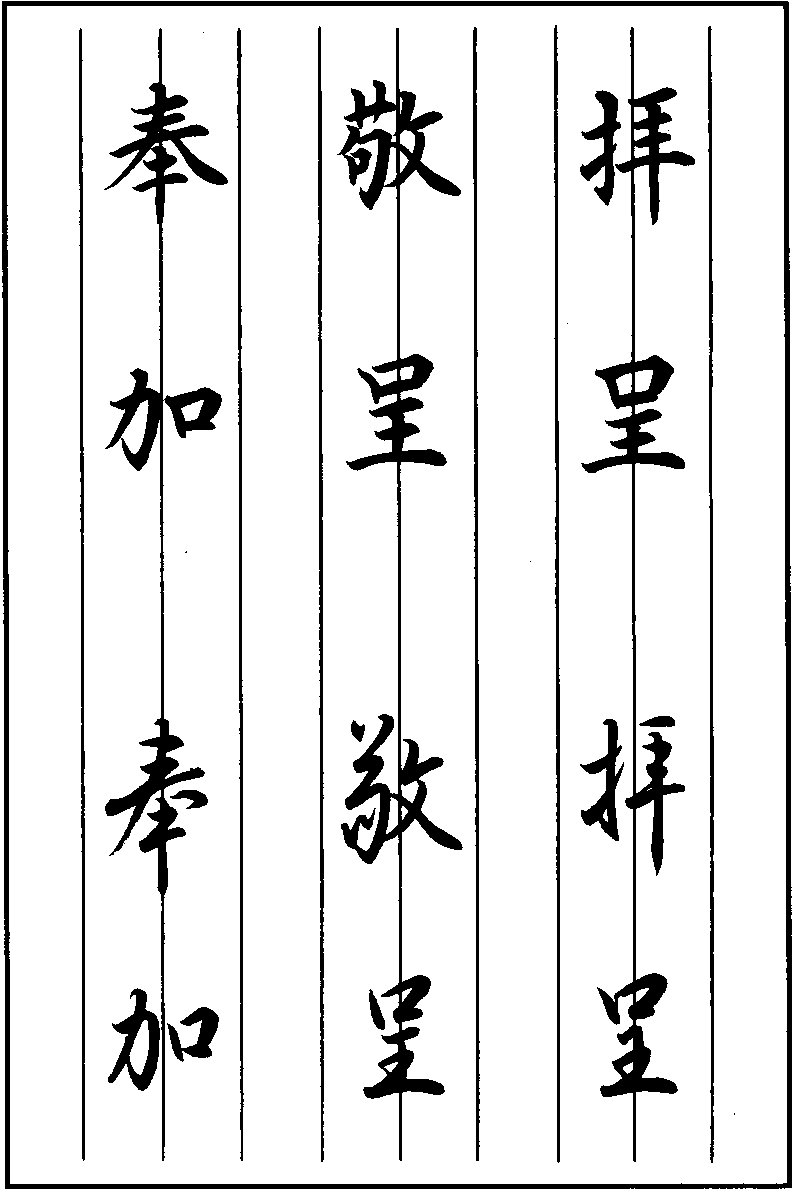 拝呈 拝呈
敬呈 敬呈
奉加 奉加